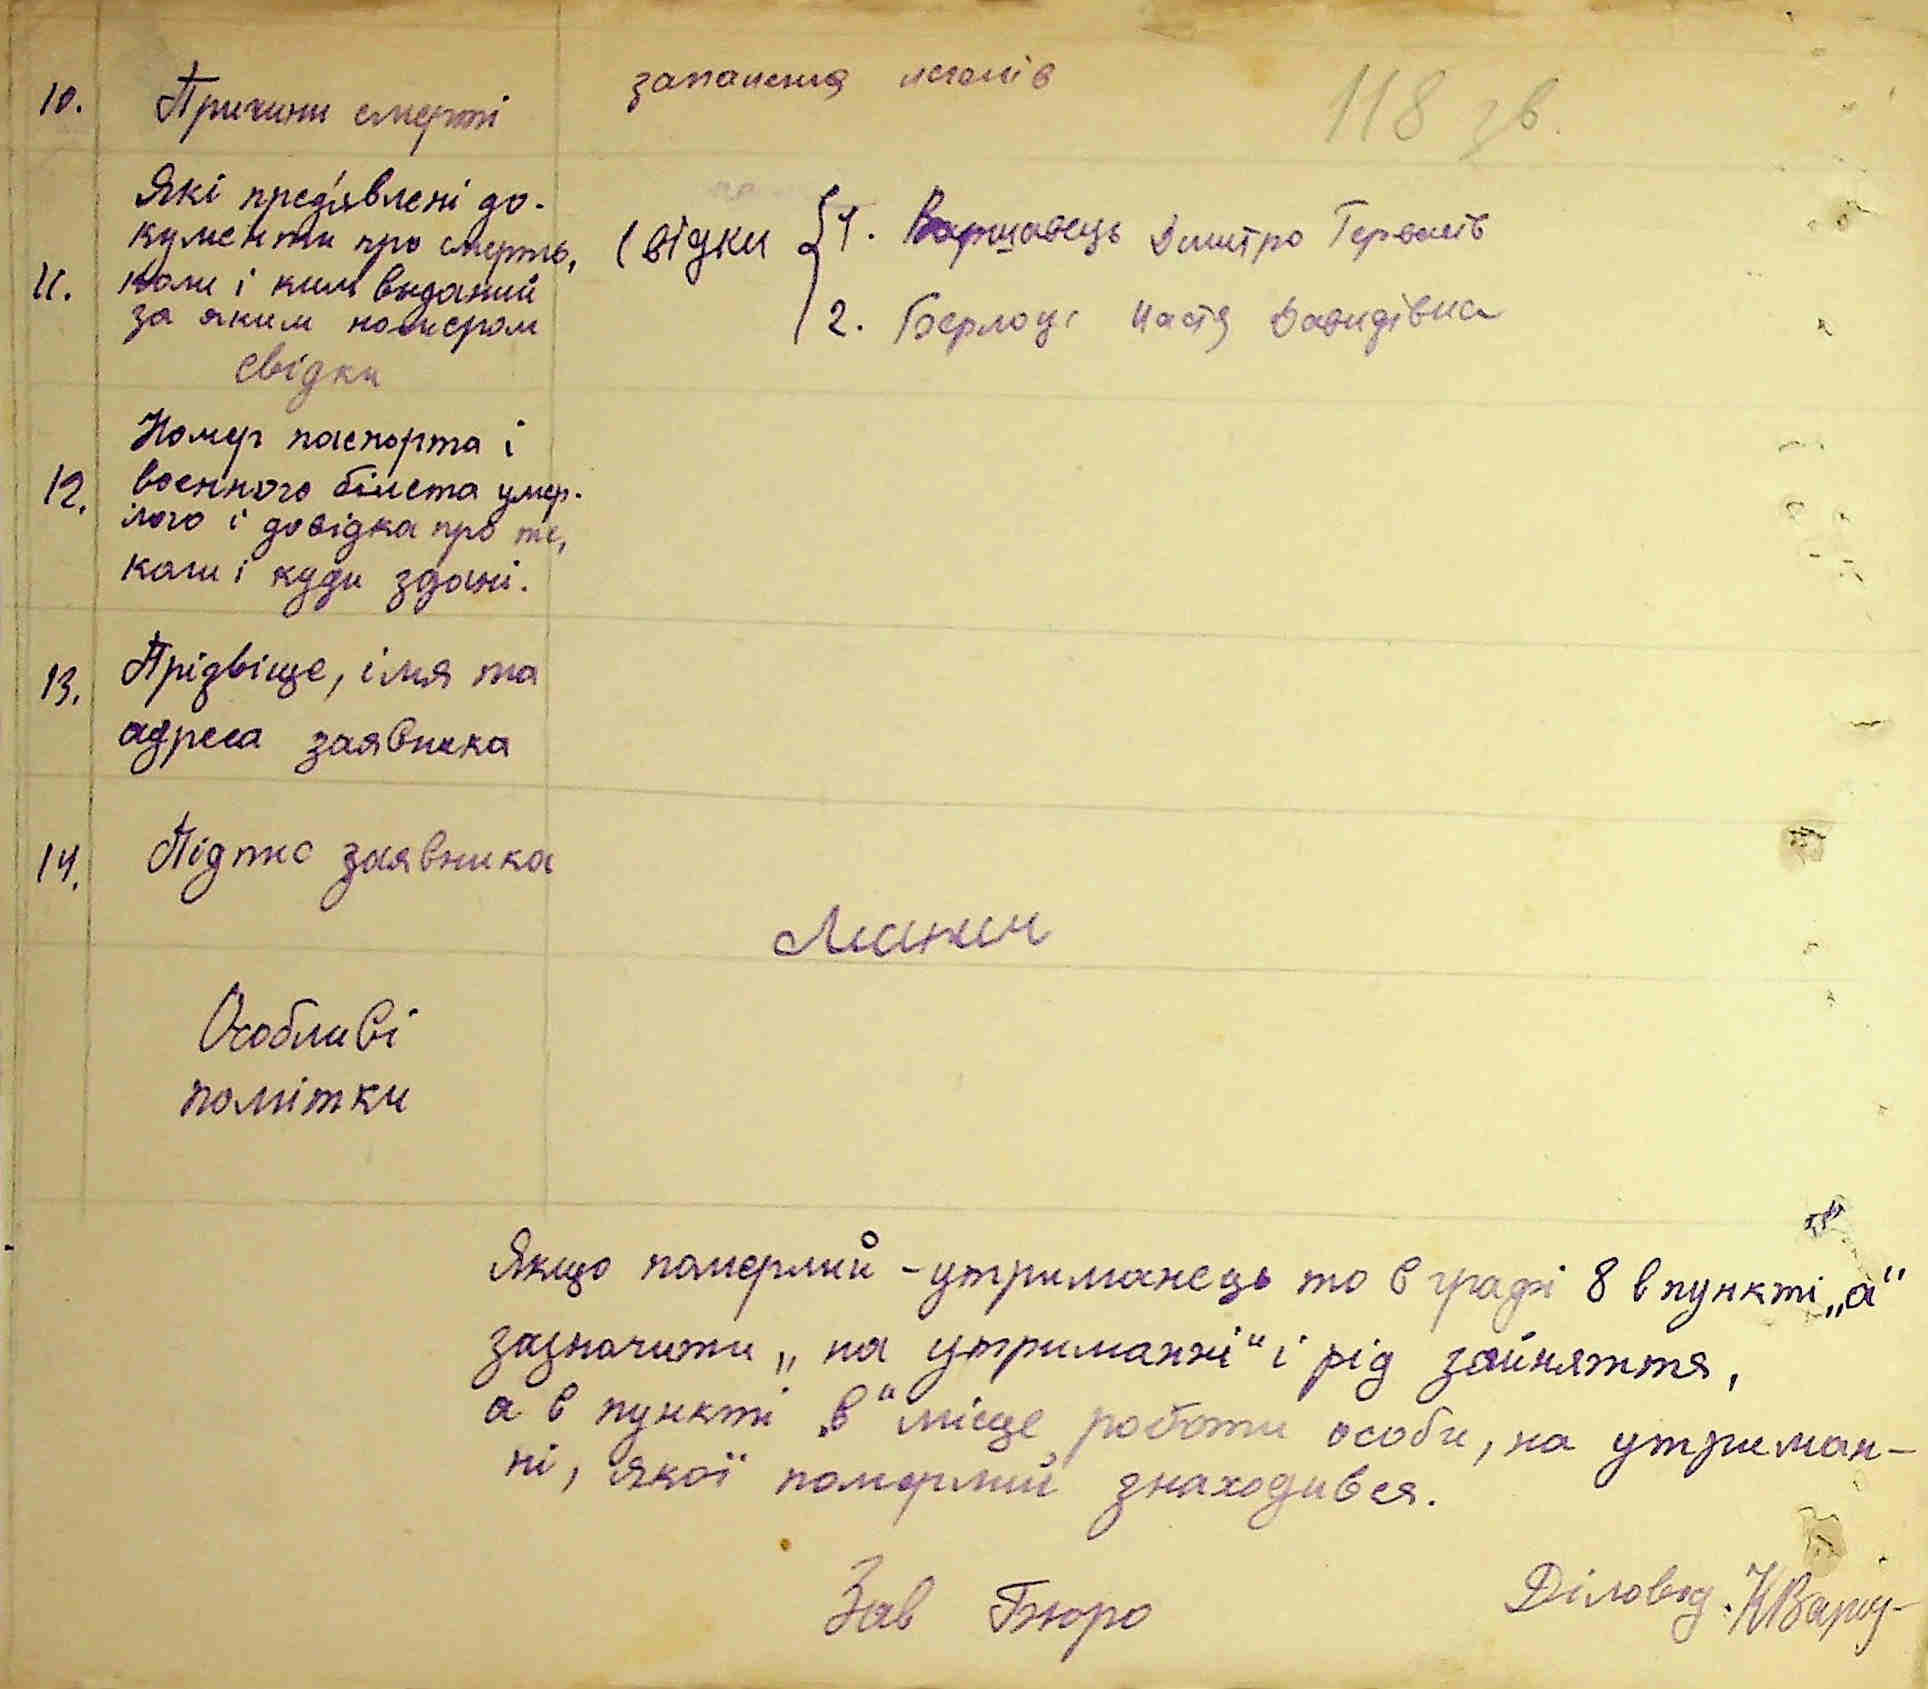 118 зв.
10. Причини смерті запаления легенів
Які пред'явлені до-
кументи про смерть,
11. коли і ким выданий
за яким номером
свідки
Свідки 1. Варшавець Дмитро
2. Берлоус Настя Давидівна
Номер паспорта і
12. военного білета умер-
лого і довідка про те,
коли і куди здані.
13. Прізвіще, імя та
адреса заявника
14. Підпис заявника
Особливі
помітки
Якщо померлий - утриманець то в графі 8 в пункті „а“
зазначити „на утриманні“ і рід зайняття,
а в пункті „в“ місце роботи особи, на утриман-
ні, якої померлий знаходився.
Зав Бюро
Діловод.